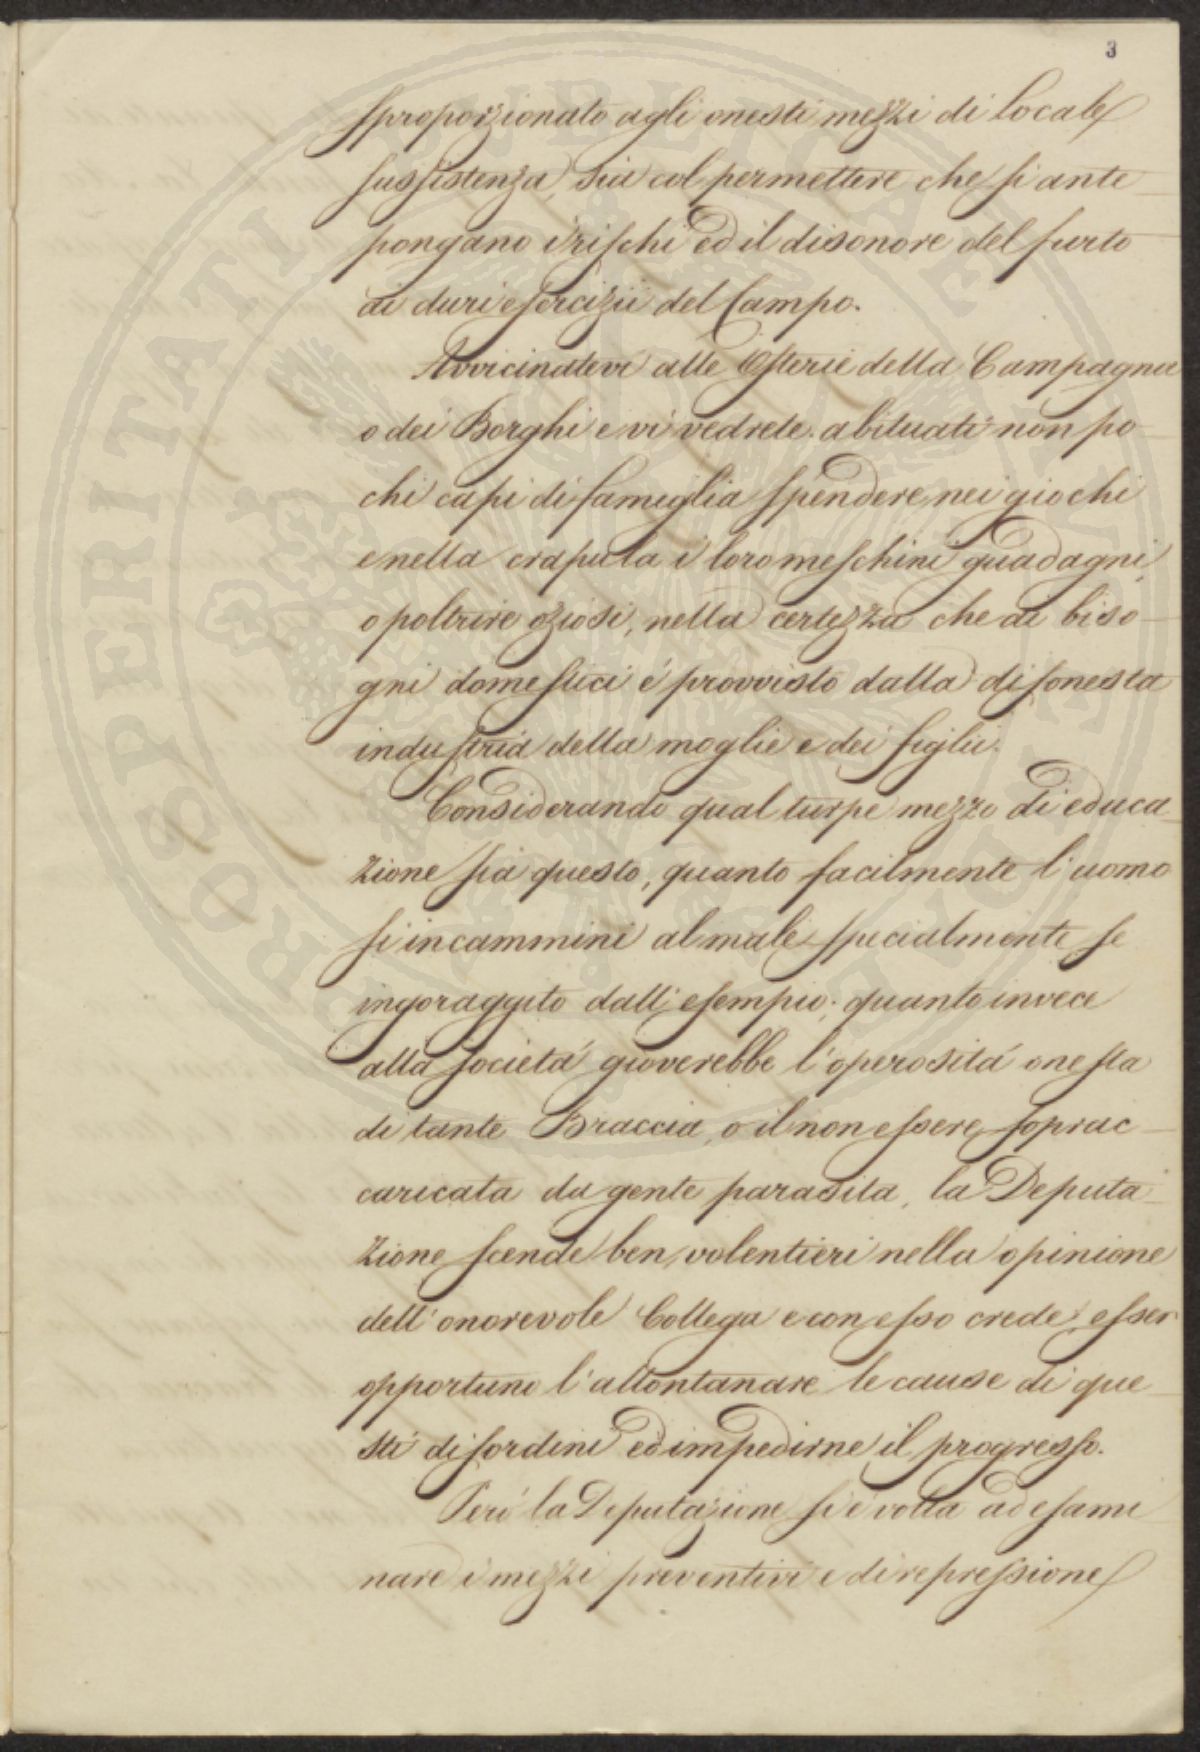 3
sproporzionato agli onesti mezzi di locale
sussistenza, sia col permettere che si ante
pongano i rischi ed il disonore del furto
ai duri esercizii del Campo.
Avvicinatevi alle Osterie della Campagna
o dei Borghi e vi vedrete abituati non po
chi capi di famiglia spendere nei giochi
e nella crapula i loro meschini guadagni,
o poltrire oziosi, nella certezza che ai biso
gni domestici é provvisto dalla disonesta
industria della moglie e dei figlii.
Considerando qual turpe mezzo di educa
zione sia questo, quanto facilmente l'uomo
si incammini al male specialmente se
incoraggito dall'esempio; quanto invece
alla società gioverebbe l'operosità onesta
di tante Braccia, o il non essere soprac
caricata da gente parasita, la Deputa
zione scende ben volentieri nella opinione
dell'onorevole Collega e con esso crede esser
opportuno l'allontanare le cause di que
sti disordini ed impedirne il progresso.
Però la Deputazione si è volta ad esami
nare i mezzi preventivi e di repressione
PROSPERITATI PUBLICAE